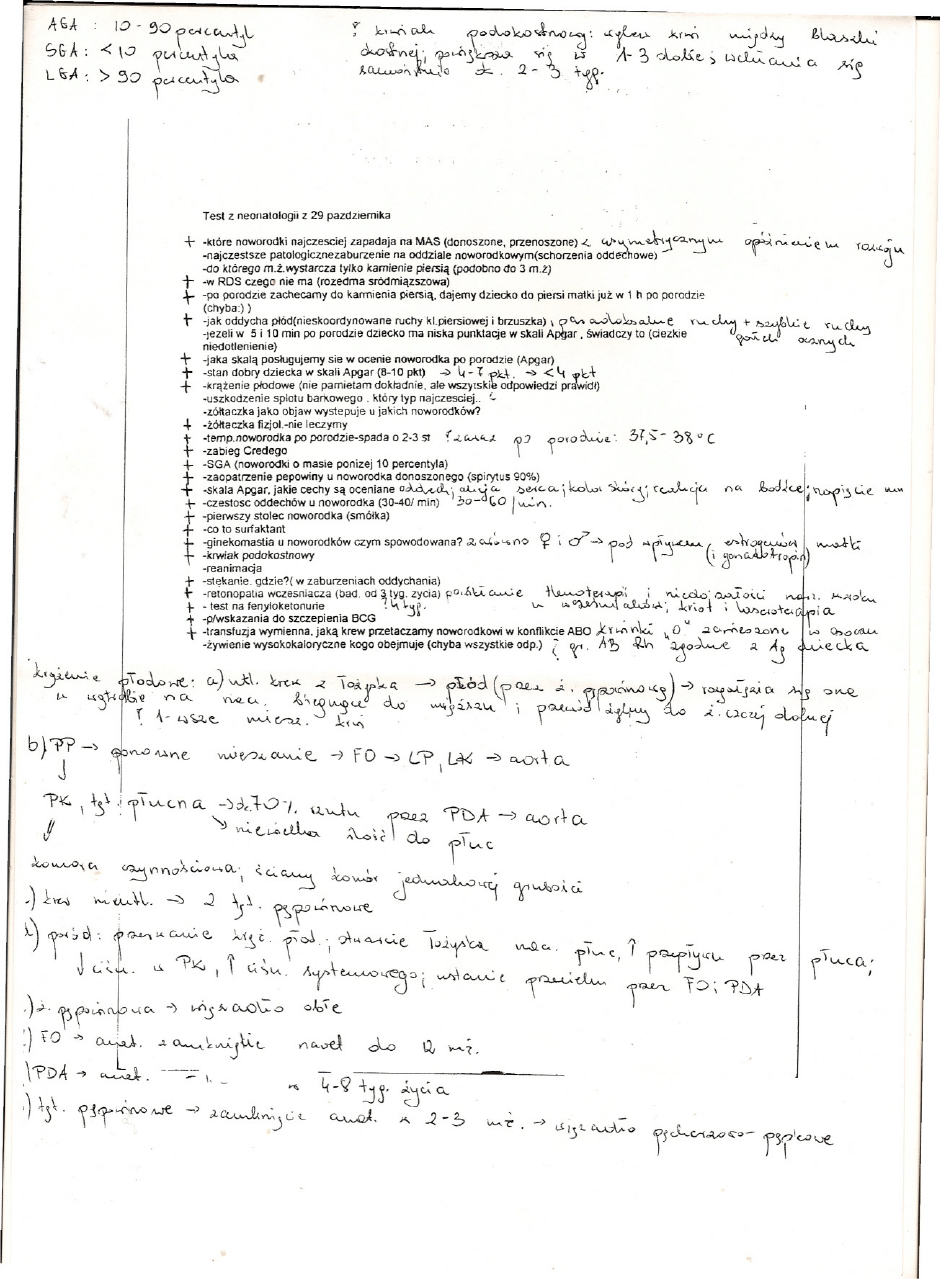 AGA : 10 - 90 percentyl
SGA : < 10 percentyla
LGA : > 90 percentyla
! krwiak podokostnowy: wylew krwi między blaszki
kostnej; powiększa się w 1-3 dobie; wchłania się
samoistnie ok. 2-3 tyg.
Test z neonatologii z 29 pazdziernika
+ -które noworodki najczesciej zapadaja na MAS (donoszone, przenoszone) z asymetrycznym opóźnieniem rozwoju
-najczestsze patologicznezaburzenie na oddziale noworodkowym(schorzenia oddechowe)
-do którego m.ż.wystarcza tylko karmienie piersią (podobno do 3 m.ż)
+ -w RDS czego nie ma (rozedma sródmiązszowa)
+ -po porodzie zachecamy do karmienia piersią, dajemy dziecko do piersi matki już w 1 h po porodzie
(chyba:) )
+ -jak oddycha płód(nieskoordynowane ruchy kl.piersiowej i brzuszka), paradoksalne ruchy + szybkie ruchy
gałek ocznych
-jezeli w 5 i 10 min po porodzie dziecko ma niska punktacje w skali Apgar , świadczy to (ciezkie
niedotlenienie)
+ -jaka skalą posługujemy sie w ocenie noworodka po porodzie (Apgar)
+ -stan dobry dziecka w skali Apgar (8-10 pkt) → 4-7 pkt. → <4 pkt
+ -krążenie płodowe (nie pamietam dokładnie, ale wszytskie odpowiedzi prawidł)
-uszkodzenie splotu barkowego . który typ najczesciej..
-zółtaczka jako objaw wystepuje u jakich noworodków?
+ -żółtaczka fizjol.-nie leczymy
+ -temp.noworodka po porodzie-spada o 2-3 st ! zaraz po porodzie: 37,5 - 38°C
+ -zabieg Credego
+ -SGA (noworodki o masie ponizej 10 percentyla)
+ -zaopatrzenie pepowiny u noworodka donoszonego (spirytus 90%)
+ -skala Apgar, jakie cechy są oceniane oddech; akcja serca; kolor skóry; reakcja na bodźce; napięcie mm
+ -czestosc oddechów u noworodka (30-40/ min) 30-60 /min.
+ -pierwszy stolec noworodka (smółka)
+ -co to surfaktant
+ -ginekomastia u noworodków czym spowodowana? zarówno ♀ i ♂ → pod wpływem estrogenów matki
(i gonadotropin)
+ -krwiak podokostnowy
-reanimacja
+ -stękanie. gdzie?( w zaburzeniach oddychania)
+ -retonopatia wczesniacza (bad. od 3 tyg. zycia) powikłanie tlenoterapii i niedojrzałości narz. wzroku
! 4 tyg. u wcześniaków; kriot i laseroterapia
+ - test na fenyloketonurie
+ -p/wskazania do szczepienia BCG
+ -transfuzja wymienna, jaką krew przetaczamy noworodkowi w konflikcie ABO krwinki „O” zawieszone w osoczu
gr. AB Rh zgodne z Ag dziecka
-żywienie wysokokaloryczne kogo obejmuje (chyba wszystkie odp.)
krążenie płodowe: a) utl. krew z łożyska → płód (przez ż. pępowinową) → rozgałęzia się ona
w wątrobie na nacz. biegnące do miąższu i przewód żylny do ż. czczej dolnej
b) PP → ponowne mieszanie → FO → LP, LK → aorta
PK, tęt. płucna → ok. 70% rzutu przez PDA → aorta
↘ niewielka ilość do płuc
komora czynnościowa; ściany komór jednakowej grubości
.) krew nieutl. → 2 tęt. pępowinowe
poród: przerwanie krąż. płod.; otwarcie łożyska nacz. płuc, ↑ przepływu przez płuca;
↓ ciśn. w PK, ↑ ciśn. systemowego; ustanie przecieku przez FO i PDA
.) ż. pępowinowa → więzadło obłe
.) FO → anat. zamknięcie nawet do 12 mż.
.) PDA → anat. — " — w 4-8 tyg. życia
.) tęt. pępowinowe → zamknięcie anat. w 2-3 mż. → więzadło pęcherzowo-pępkowe